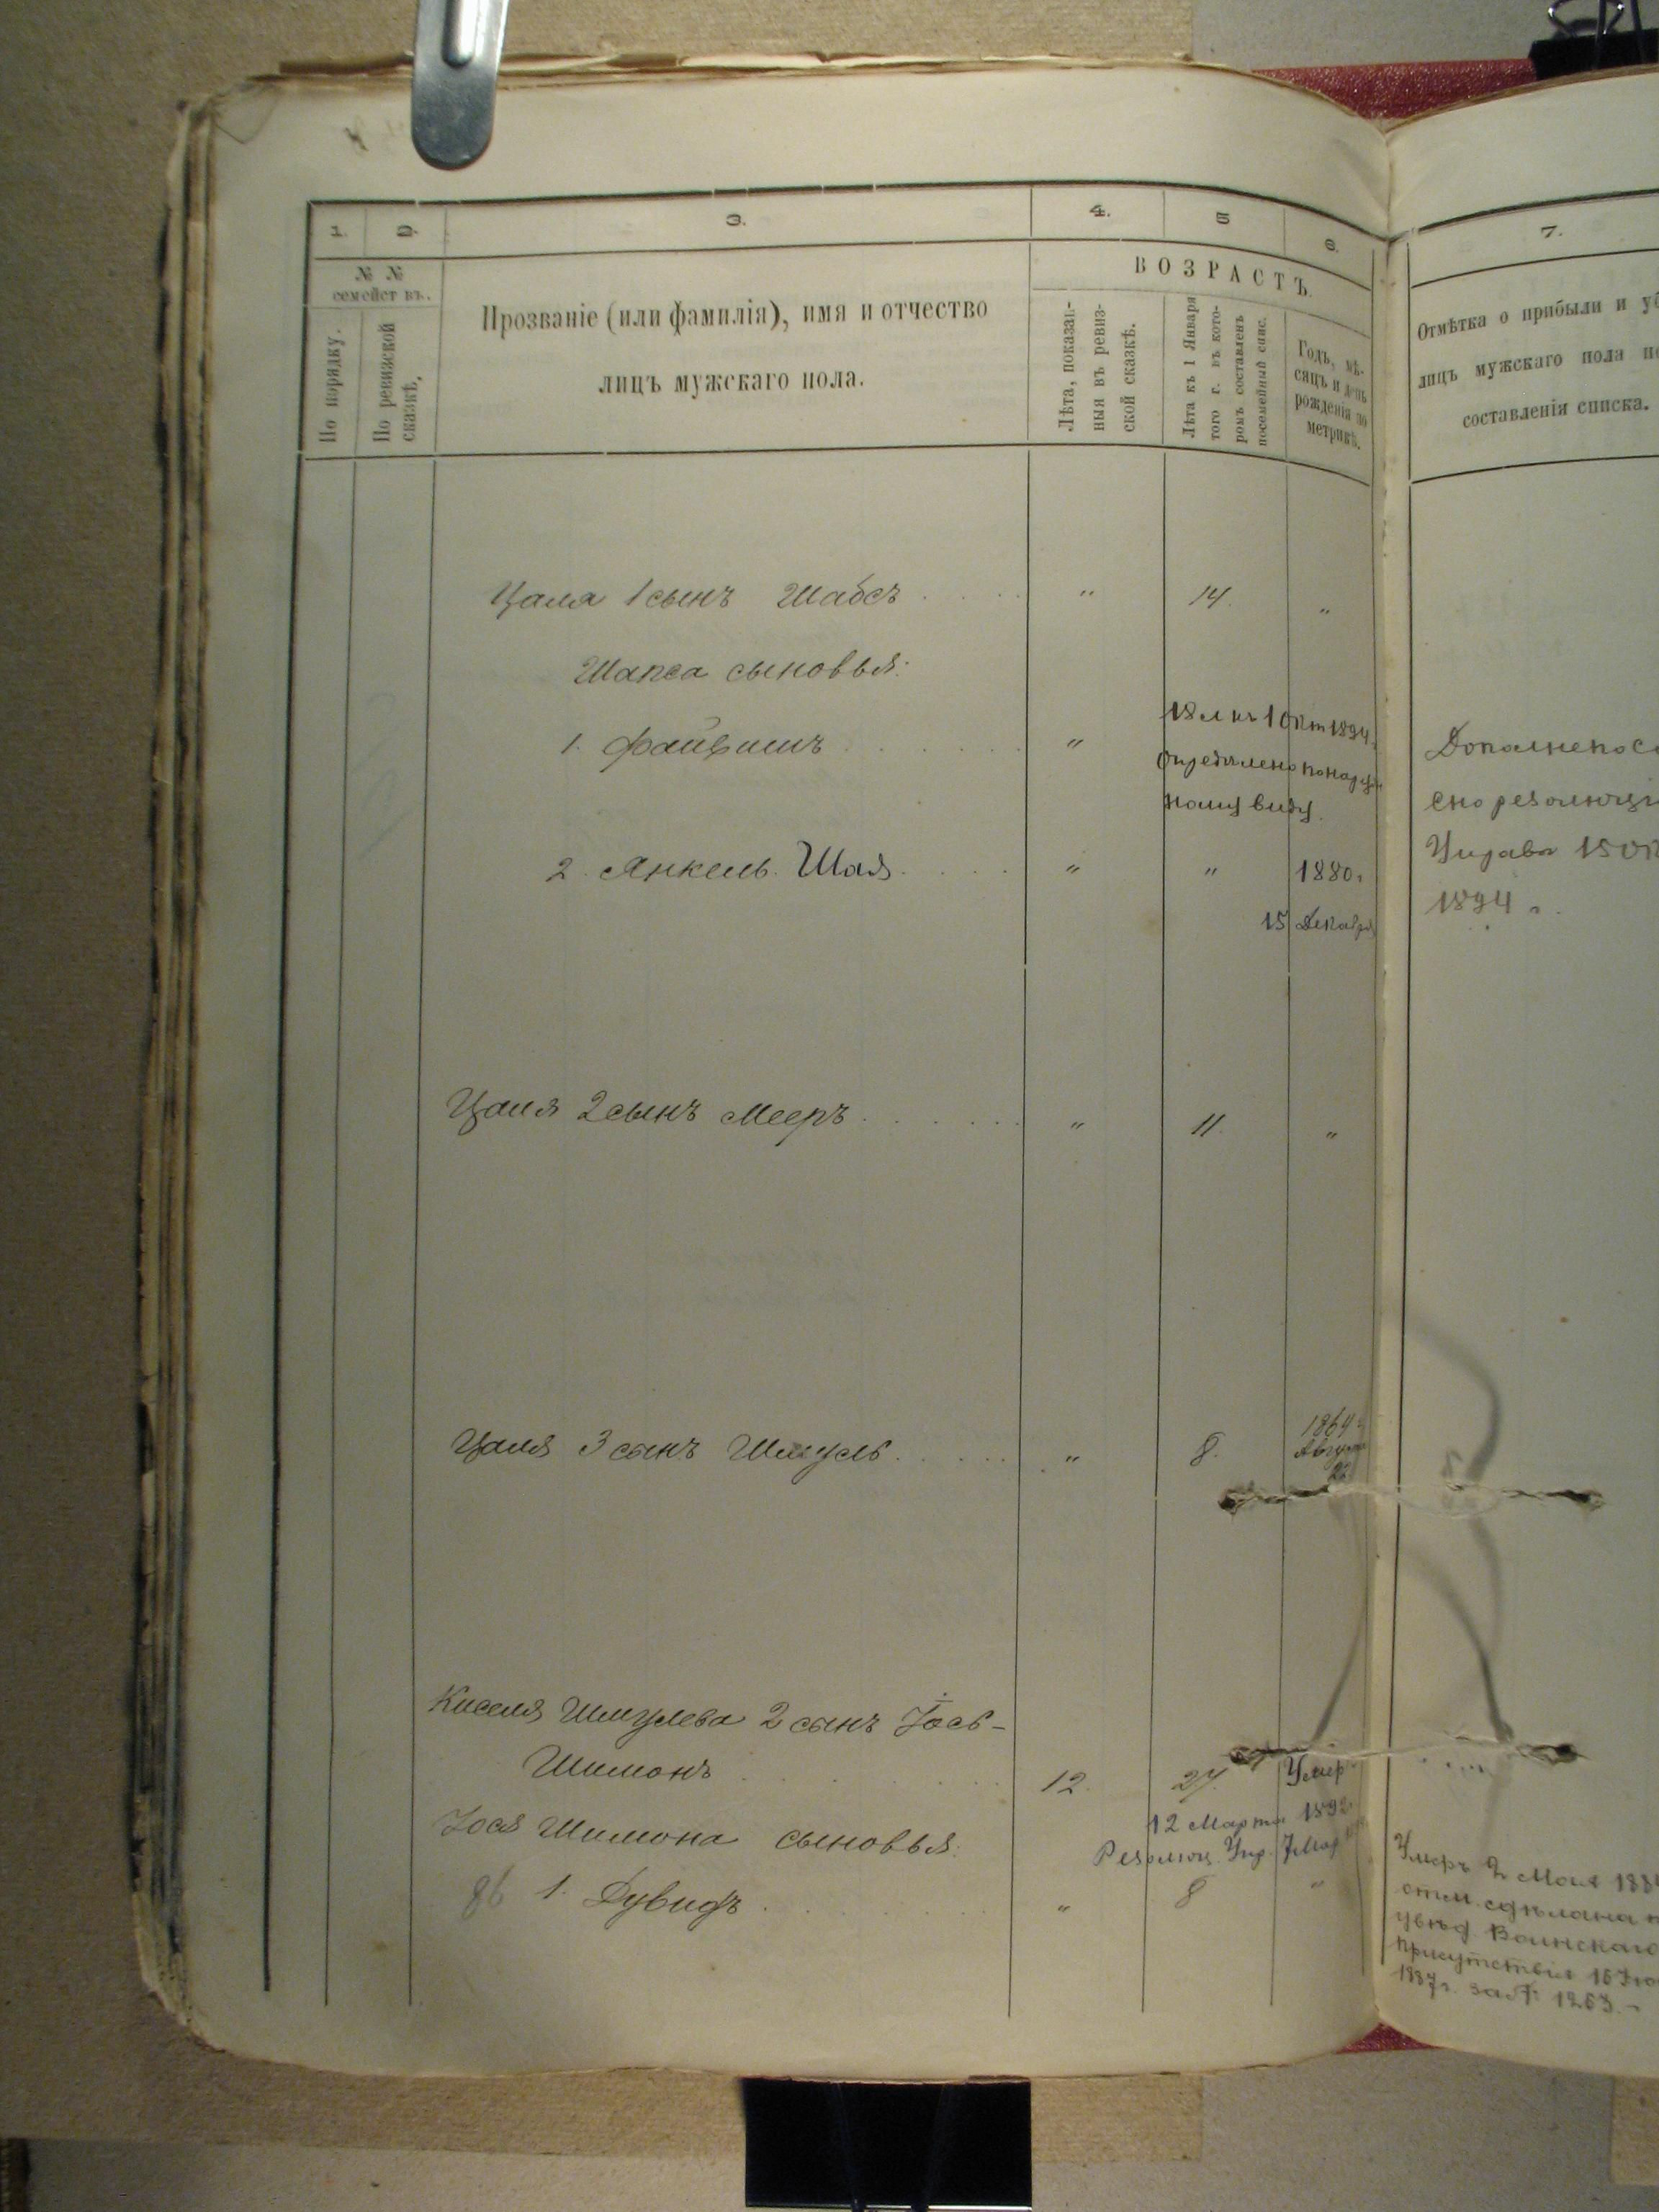 1.
2.
3.
4.
5
6.
7.
№ №
семействъ.
По порядку.
По ревизской сказкѣ.
Прозваніе (или фамилія), имя и отчество
лицъ мужскаго пола.
ВОЗРАСТЪ.
Лѣта, показан-
ныя въ ревиз-
ской сказкѣ.
Лѣта къ 1 Января
того г. въ кото-
ромъ составленъ
посемейный спис.
Годъ, мѣ-
сяцъ и день
рожденія по
метрикѣ.
Отмѣтка о прибыли и уб
лицъ мужскаго пола по
составленія списка.
Цаля 1 сынъ Шабсъ . . . . . „ 14. „
Шапса сыновья:
1. Файвишъ . . . . . . „ 18 л. къ 1 Окт 1894.
опредѣлено по наруж
ному виду.
2. Янкель. Шая. . . . . „ „ 1880 г.
15 Декабря
Дополнено со
сно резолюціи
Управы 15 Ок
1894 г.
Цаля 2 сынъ Мееръ . . . . . . „ 11. „
Цаля 3 сынъ Шмуль . . . . . . „ 8. 1864 г.
Августа
Киселя Шмулева 2 сынъ Іось-
Шимонъ . . . . . . . . 12. 27. Умер.
12 Марта 1892
Резолюц. Упр. 7 Мар
Іося Шимона сыновья:
1. Дувидъ . . . . . . . „ 8 „
Умеръ 2 Мая 188
отм. сдѣлана п
увѣд. Воинскаго
присутствія 16 Ію
1887 г. за № 1263. –